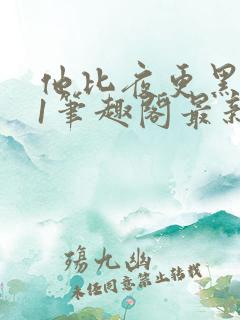 他比夜更黑
1笔趣阁最新
殇九幽
未经同意禁止转载